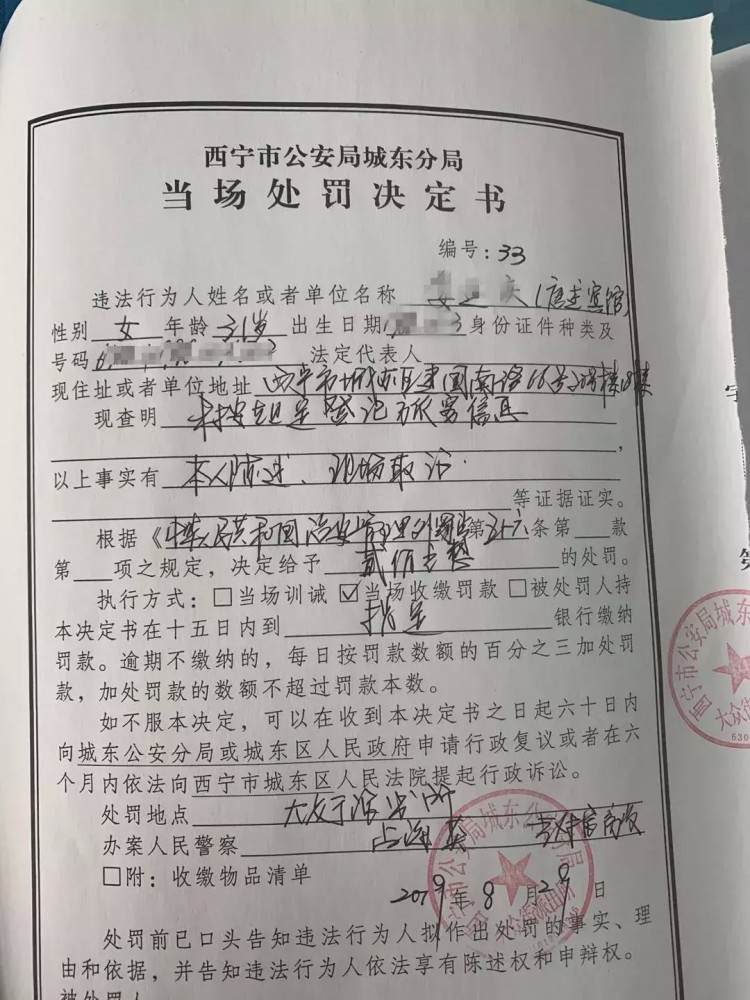 西宁市公安局城东分局
当场处罚决定书
编号：33
违法行为人姓名或者单位名称 宾馆)
性别 女 年龄 31岁 出生日期 3 身份证件种类及
号码 法定代表人
现住址或者单位地址 西宁市城东区建国南路66号
现查明 未按规定登记旅客信息
，
以上事实有 本人陈述、现场取证
等证据证实。
根据《中华人民共和国治安管理处罚法 第五十六条第 款
第 项之规定，决定给予 贰佰元整 的处罚。
执行方式：□当场训诫 ☑当场收缴罚款 □被处罚人持
本决定书在十五日内到 指定 银行缴纳
罚款。逾期不缴纳的，每日按罚款数额的百分之三加处罚
款，加处罚款的数额不超过罚款本数。
如不服本决定，可以在收到本决定书之日起六十日内
向城东公安分局或城东区人民政府申请行政复议或者在六
个月内依法向西宁市城东区人民法院提起行政诉讼。
处罚地点 派出所
办案人民警察
□附：收缴物品清单
2019年8月29日
处罚前已口头告知违法行为人拟作出处罚的事实、理
由和依据，并告知违法行为人依法享有陈述权和申辩权。
被处罚人
西宁市公安局城东公
大众街
630